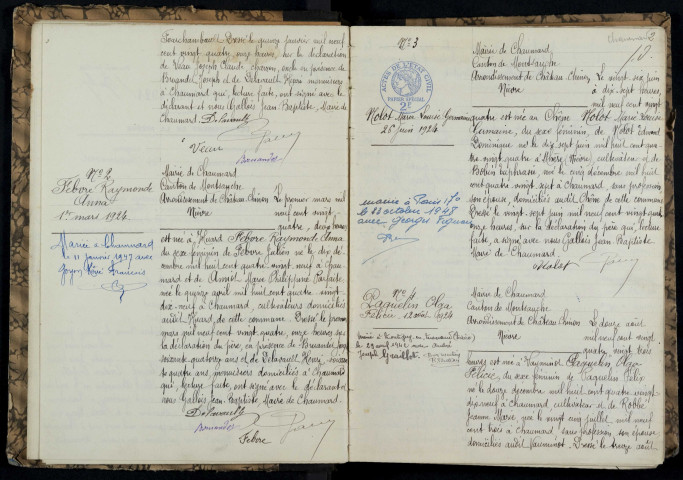 Fourchambault. Dressé le quinze janvier mil neuf
cent vingt quatre, onze heures, sur la déclaration
de Veau Joseph Claude, charron, en présence de
Bruandet Joseph et de Delavault Henri
à Chaumard qui, lecture faite, ont signé avec le
déclarant et nous Gallois Jean Baptiste, Maire de
Chaumard. Delavault
Veau
Bruandet
N° 2
Febvre Raymonde
Anna
1er mars 1924
Mariée à Chaumard
le 11 janvier 1947 avec
Mairie de Chaumard
Canton de Montsauche
Arrondissement de Château Chinon
Nièvre
Le premier mars mil
neuf cent vingt
quatre, deux heures
est née à Huard Febvre Raymonde Anna
du sexe féminin de Febvre Julien né le dix dé
cembre mil huit cent quatre vingt neuf à Chau
mard et de Marie Philippine Parfaite,
née le quinze avril mil huit cent quatre vingt
dix neuf à Chaumard, cultivateurs domiciliés
audit Huard, de cette commune. Dressé le premier
mars mil neuf cent vingt quatre, onze heures sur
la déclaration du père, en présence de Bruandet Joseph
soixante quatorze ans et de Delavault Henri,
quatre ans, domiciliés à Chaumard
qui, lecture faite, ont signé avec le déclarant et
nous Gallois Jean-Baptiste Maire de Chaumard.
Delavault
Bruandet
Febvre
Chaumard 2
N° 3
ACTES DE L'ETAT CIVIL
PAPIER SPECIAL
2F
Nolot Marie Louise Germaine
26 juin 1924
mariée à Paris
le 23 octobre 1948
avec Georges
Mairie de Chaumard
Canton de Montsauche
Arrondissement de Château Chinon
Nièvre
Le vingt six juin
à dix sept heures,
mil neuf cent vingt
quatre est née au Chêne Nolot Marie Louise
Germaine, du sexe féminin, de Nolot Edouard
Dominique né le dix sept juin mil huit cent quatre
vingt quatre à (Nièvre) cultivateur et de
Euphrasie, née le cinq décembre mil huit
cent quatre vingt sept à Chaumard, sans profession
son épouse, domiciliés audit Chêne de cette commune
Dressé le vingt sept juin mil neuf cent vingt quatre
onze heures, sur la déclaration du père qui, lecture
faite, a signé avec nous Gallois Jean Baptiste
Maire de Chaumard.
Nolot
N° 4
Paquelin Olga
Félicie, 12 août 1924
le 29 avril 1946 avec André
Joseph
Mairie de Chaumard
Canton de Montsauche
Arrondissement de Château Chinon
Nièvre
Le douze août
mil neuf cent
quatre, vingt trois
heures est née à Vauminot Paquelin Olga
Félicie, du sexe féminin de Paquelin Félix
né le douze décembre mil huit cent quatre vingt
dix neuf à Chaumard, cultivateur et de
Jeanne Marie, née le vingt cinq juillet mil neuf
cent trois à Chaumard, sans profession, son épouse
domiciliés audit Vauminot. Dressé le treize août